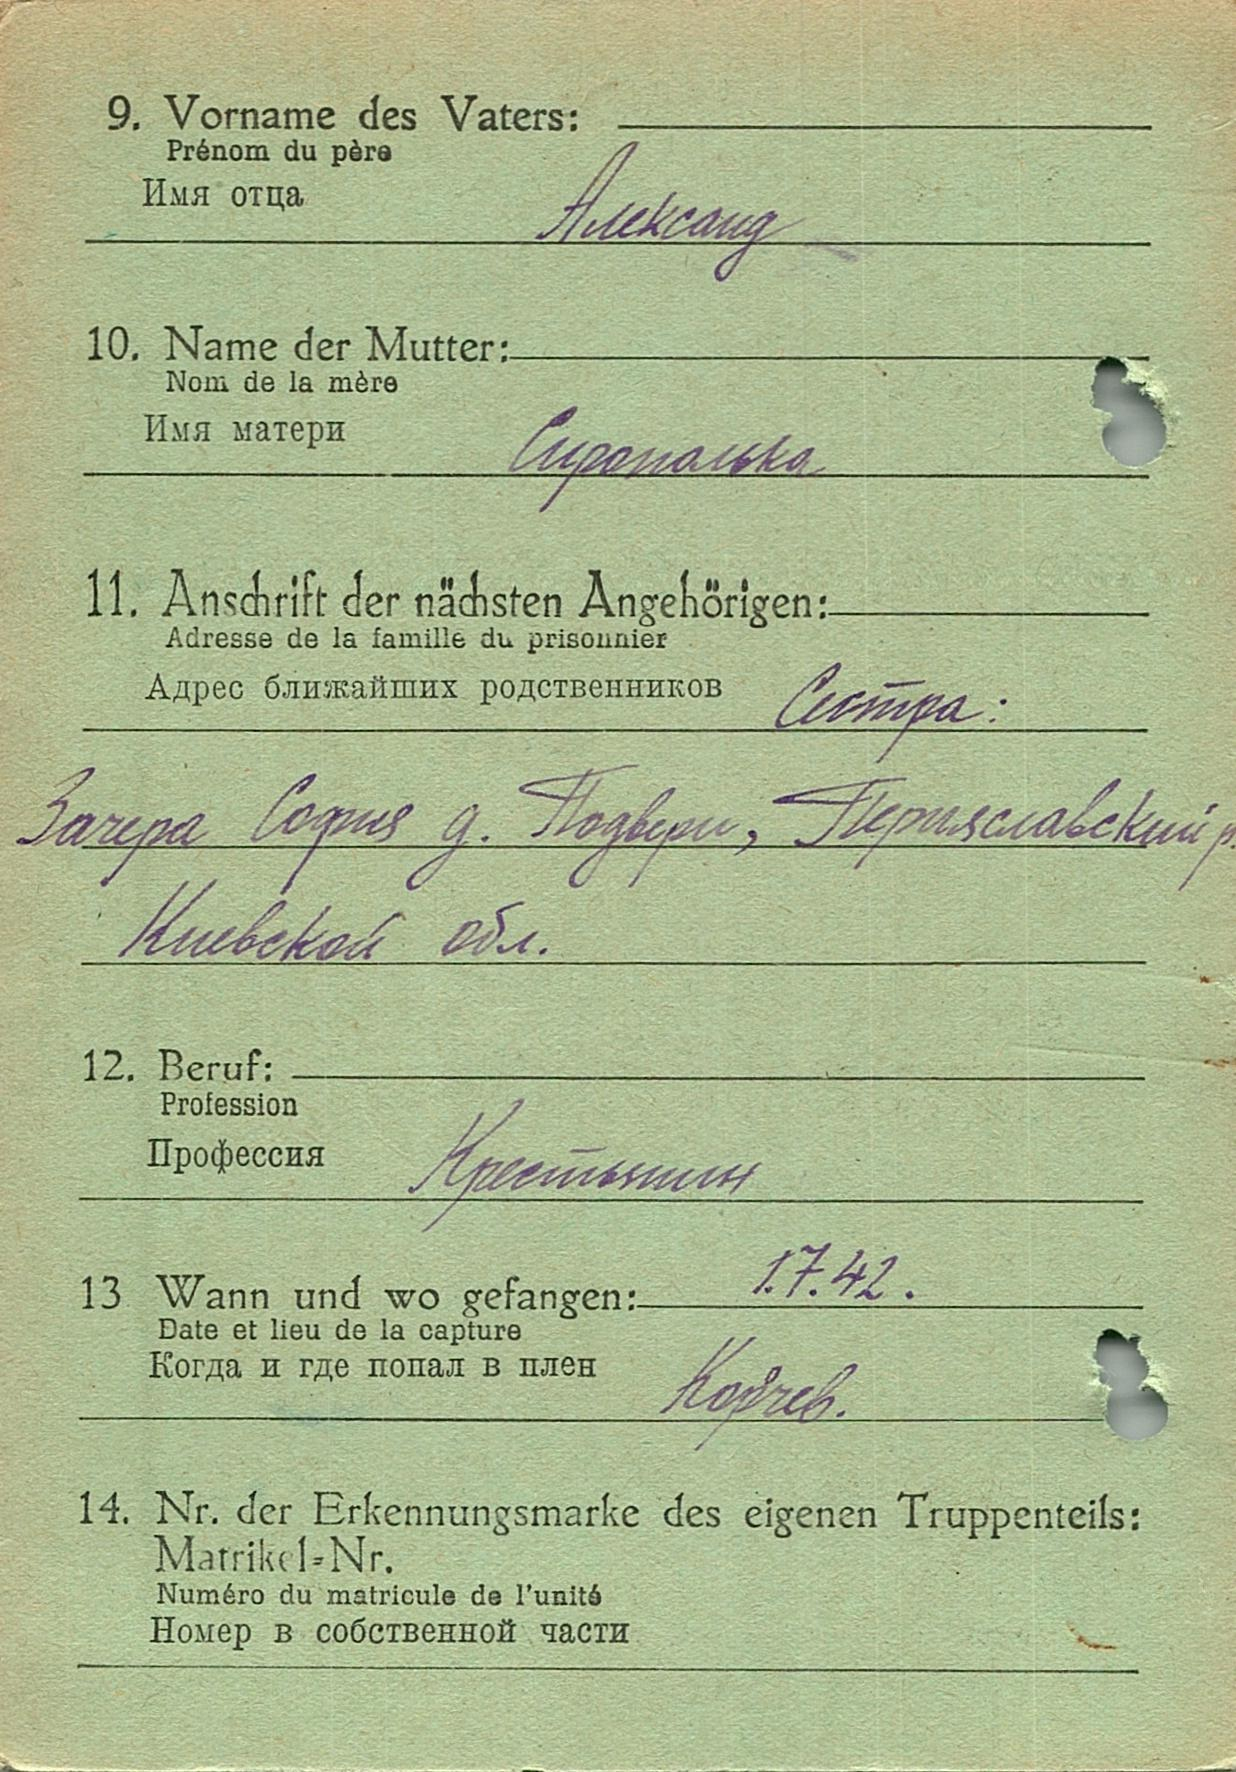 9. Vorname des Vaters:
Prénom du père
Имя отца
Александ
10. Name der Mutter:
Nom de la mère
Имя матери
Сиропалька
11. Anschrift der nächsten Angehörigen:
Adresse de la famille du prisonnier
Адрес ближайших родственников Сестра:
Зачера София д. Подвери, Перияславский р.
Киевской обл.
12. Beruf:
Profession
Профессия
Крестьянин
13 Wann und wo gefangen: 1.7.42.
Date et lieu de la capture
Когда и где попал в плен
14. Nr. der Erkennungsmarke des eigenen Truppenteils:
Matrikel-Nr.
Numéro du matricule de l'unité
Номер в собственной части